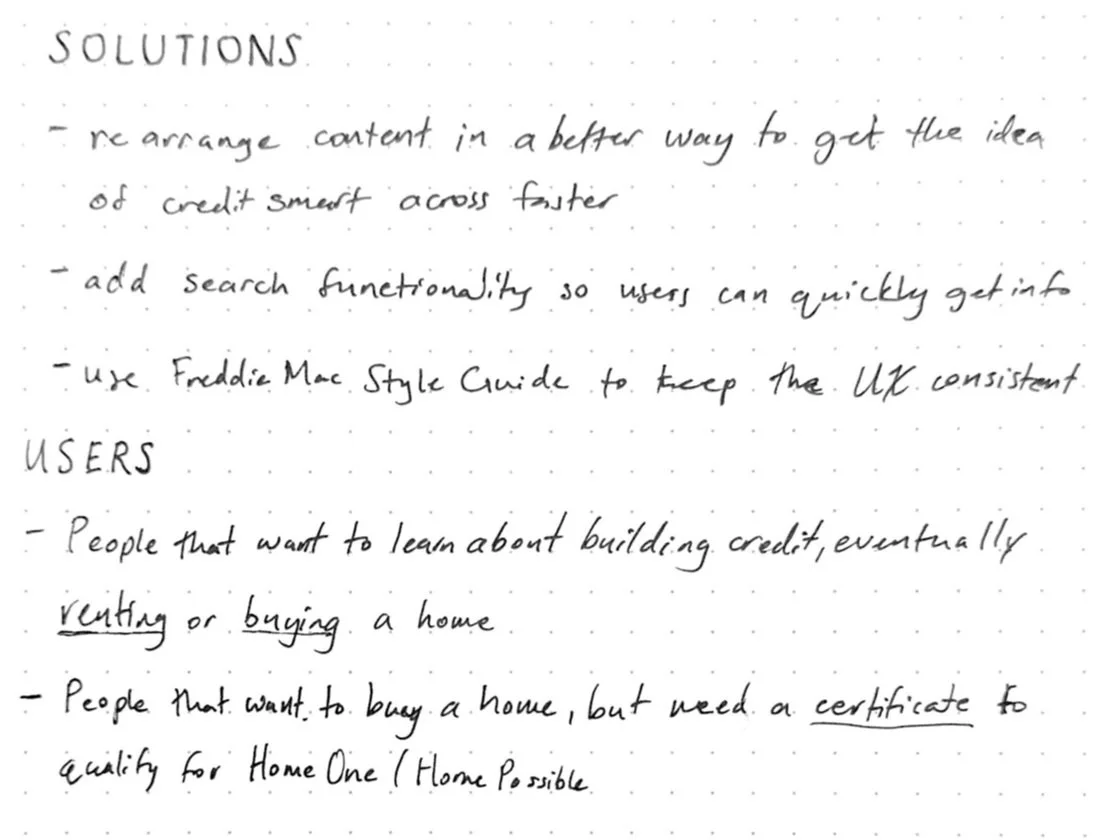 SOLUTIONS
- rearrange content in a better way to get the idea
of credit smart across faster
- add search functionality so users can quickly get info
- use Freddie Mac Style Guide to keep the UX consistent
USERS
- People that want to learn about building credit, eventually
renting or buying a home
- People that want to buy a home, but need a certificate to
qualify for Home One / Home Possible